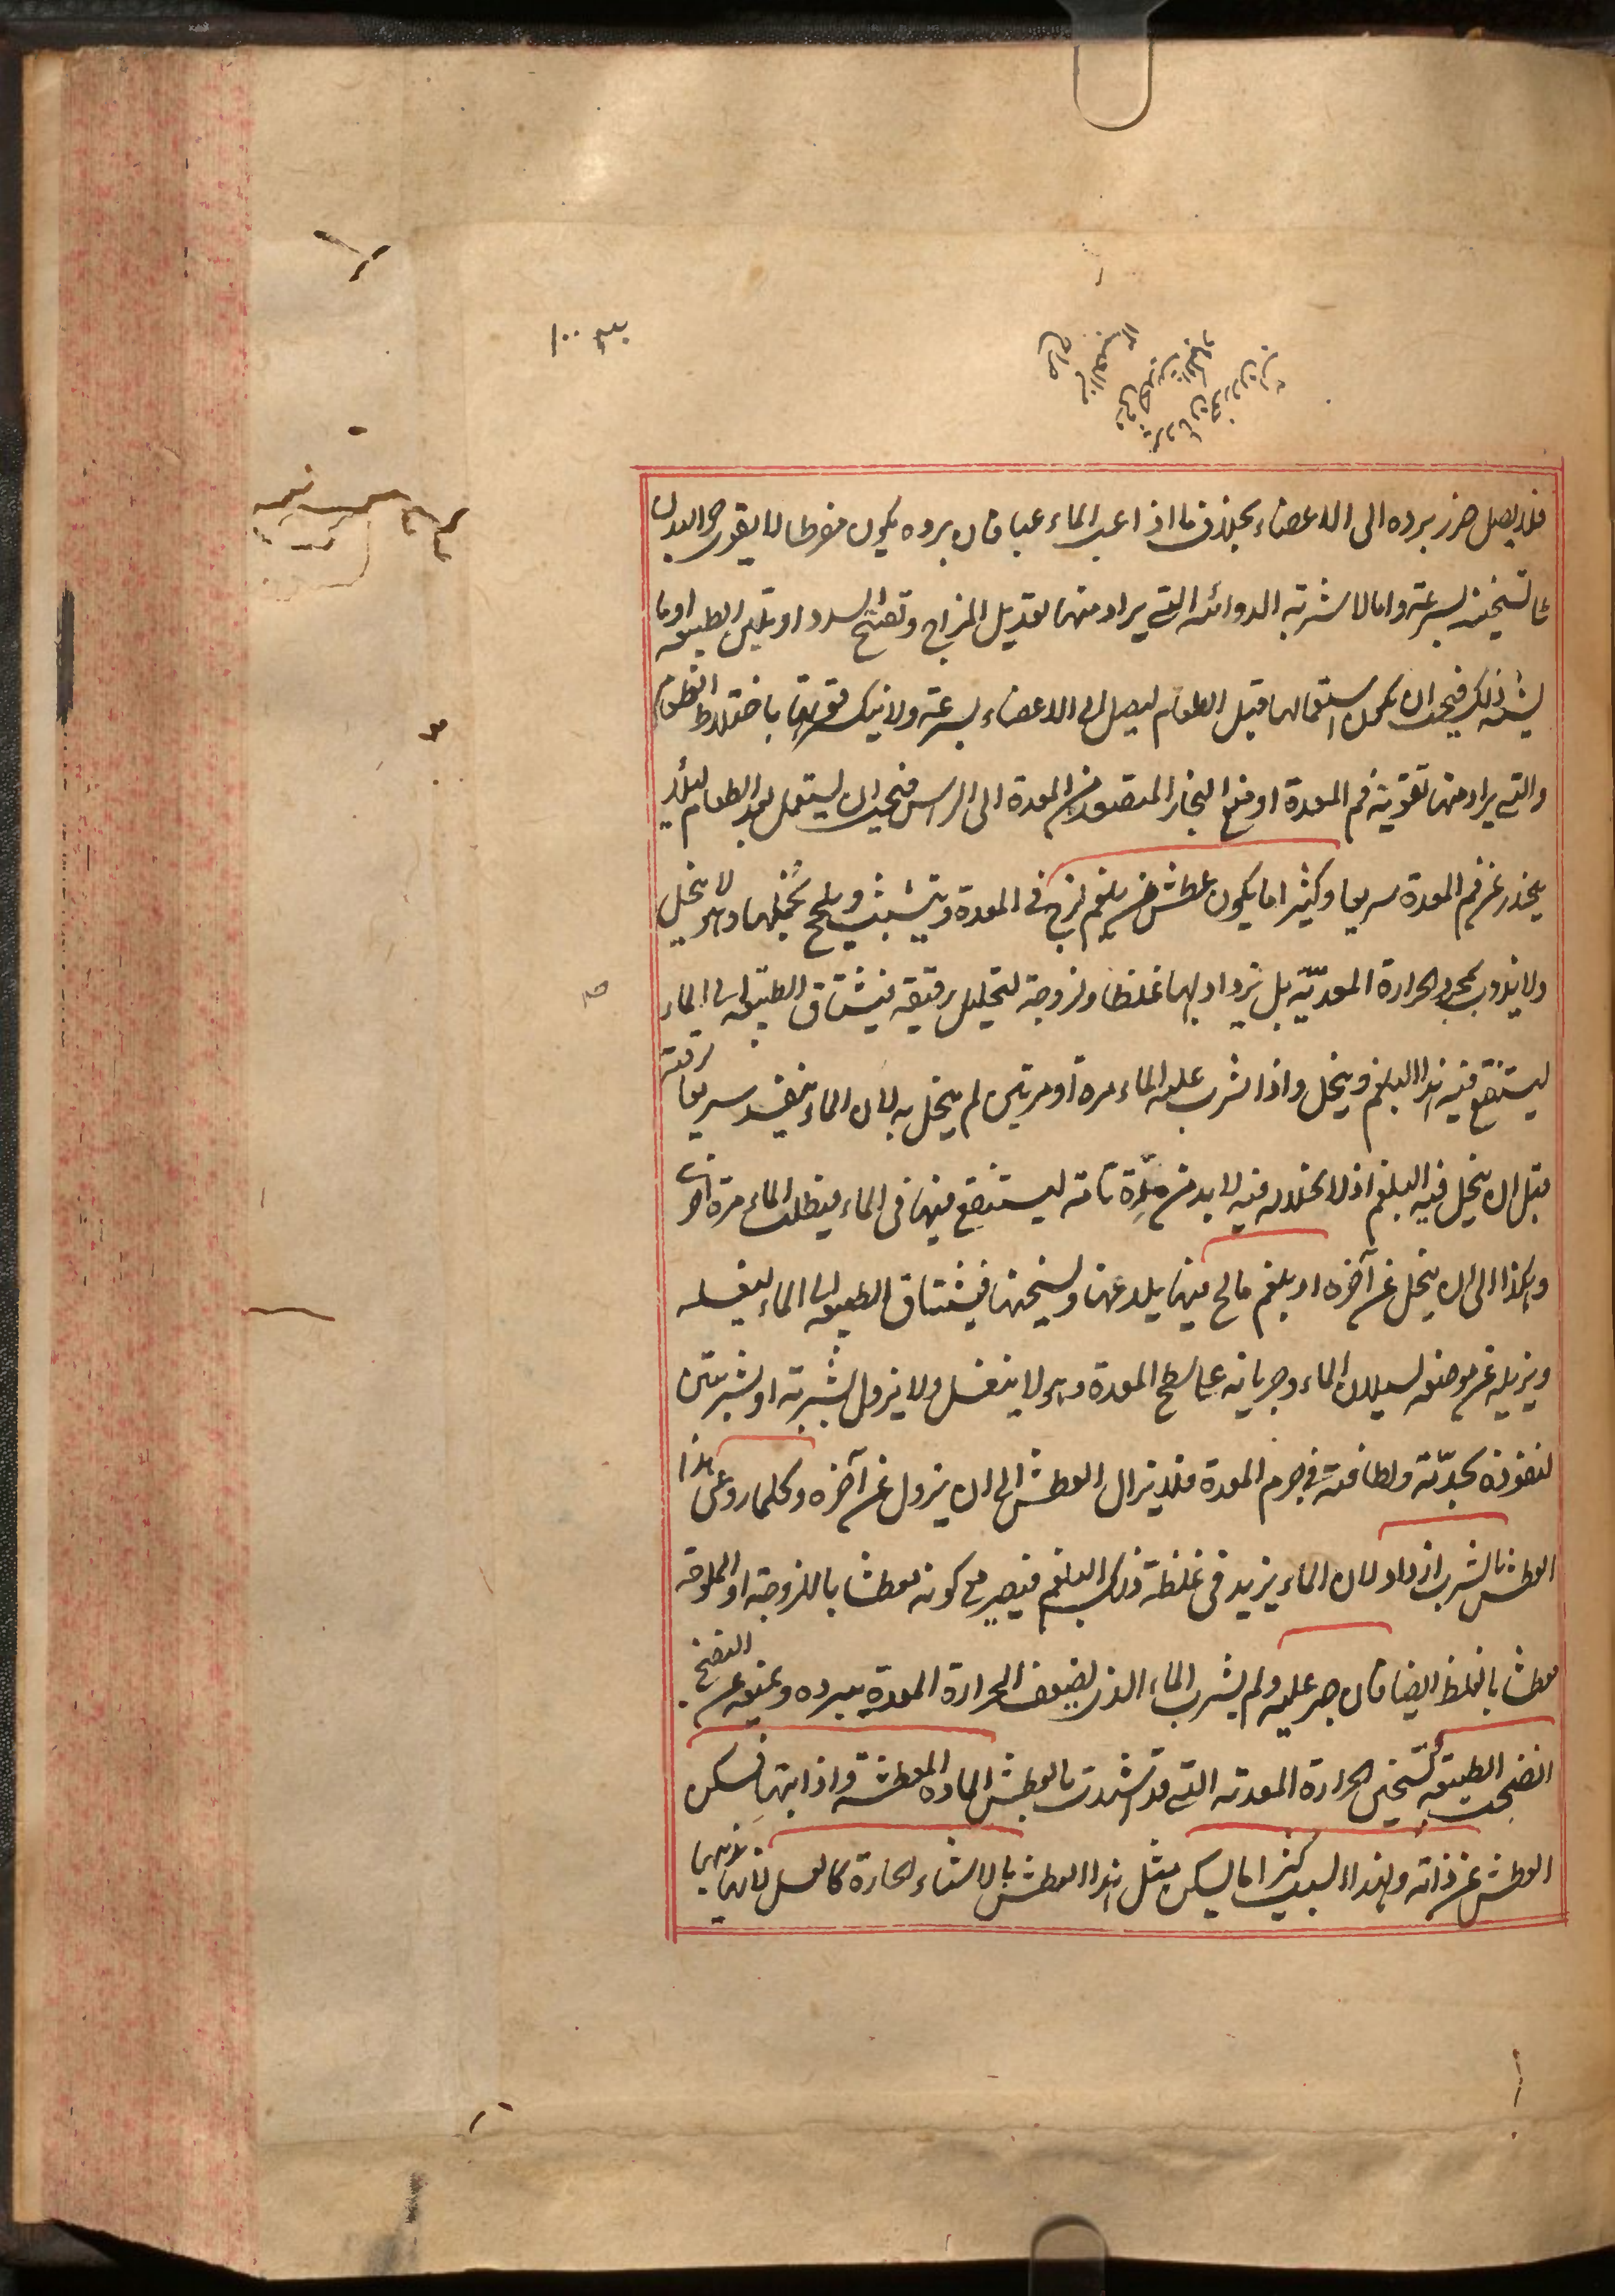 فلا يصل ضرر برده الى الاعضاء بخلاف ما اذا عب الماء عبا فان برده يكون مفرطا لا يقوى حر البدن
على تسخينه بسرعة واما الاشربة الدوائية التي يراد منها تعديل المزاج وتفتيح السدد او تليين الطبيعة او ما
يشبه ذلك فيجب ان يكون استعمالها قبل الطعام ليصل الى الاعضاء بسرعة ولا ينكسر قوتها باختلاط الطعام
والتي يراد منها تقوية فم المعدة او منع البخار المتصعد من المعدة الى الراس فيجب ان يستعمل بعد الطعام لئلا
ينحدر عن فم المعدة سريعا وكثيرا ما يكون عطش من بلغم لزج في المعدة يتشبث ويلحج بخملها وهو لا ينحل
ولا يذوب بمجرد الحرارة المعدية بل يزداد بها غلظا ولزوجة لتحليل رقيقه فيشتاق الطبيعة الى الماء
ليستنقع فيه هذا البلغم وينحل واذا شرب عليه الماء مرة او مرتين لم ينحل به لان الماء ينفذ سريعا لرقته
قبل ان ينحل فيه البلغم اذ لانحلاله فيه لا بد من مدة تامة ليستنقع فيها في الماء فيطلب الماء مرة اخرى
وهكذا الى ان ينحل عن آخره او بلغم مالح فيها يلدغها ويسخنها فيشتاق الطبيعة الى الماء ليغسله
ويزيله عن موضعه لسيلان الماء وجريانه على سطح المعدة وهو لا ينغسل ولا يزول بشربة او شربتين
لنفوذه بحدّته ولطافته في جرم المعدة فلا يزال العطش الى ان يزول عن آخره وكلما روعى هذا
العطش بالشرب ازداد لان الماء يزيد في غلظة ذلك البلغم فيصير مع كونه معطشا باللزوجة او الملوحة
معطشا بالغلظ ايضا فان صبر عليه ولم يشرب الماء الذي يضعف الحرارة المعدية ببرده ويمنعه عن النضج
انضجت الطبيعة بتسخين الحرارة المعدية التي قد اشتدت بالعطش المادة المعطشة واذابتها فسكن
العطش عن ذاته ولهذا السبب كثيرا ما يسكن مثل هذا العطش بالاشياء الحارة كالعسل لانها